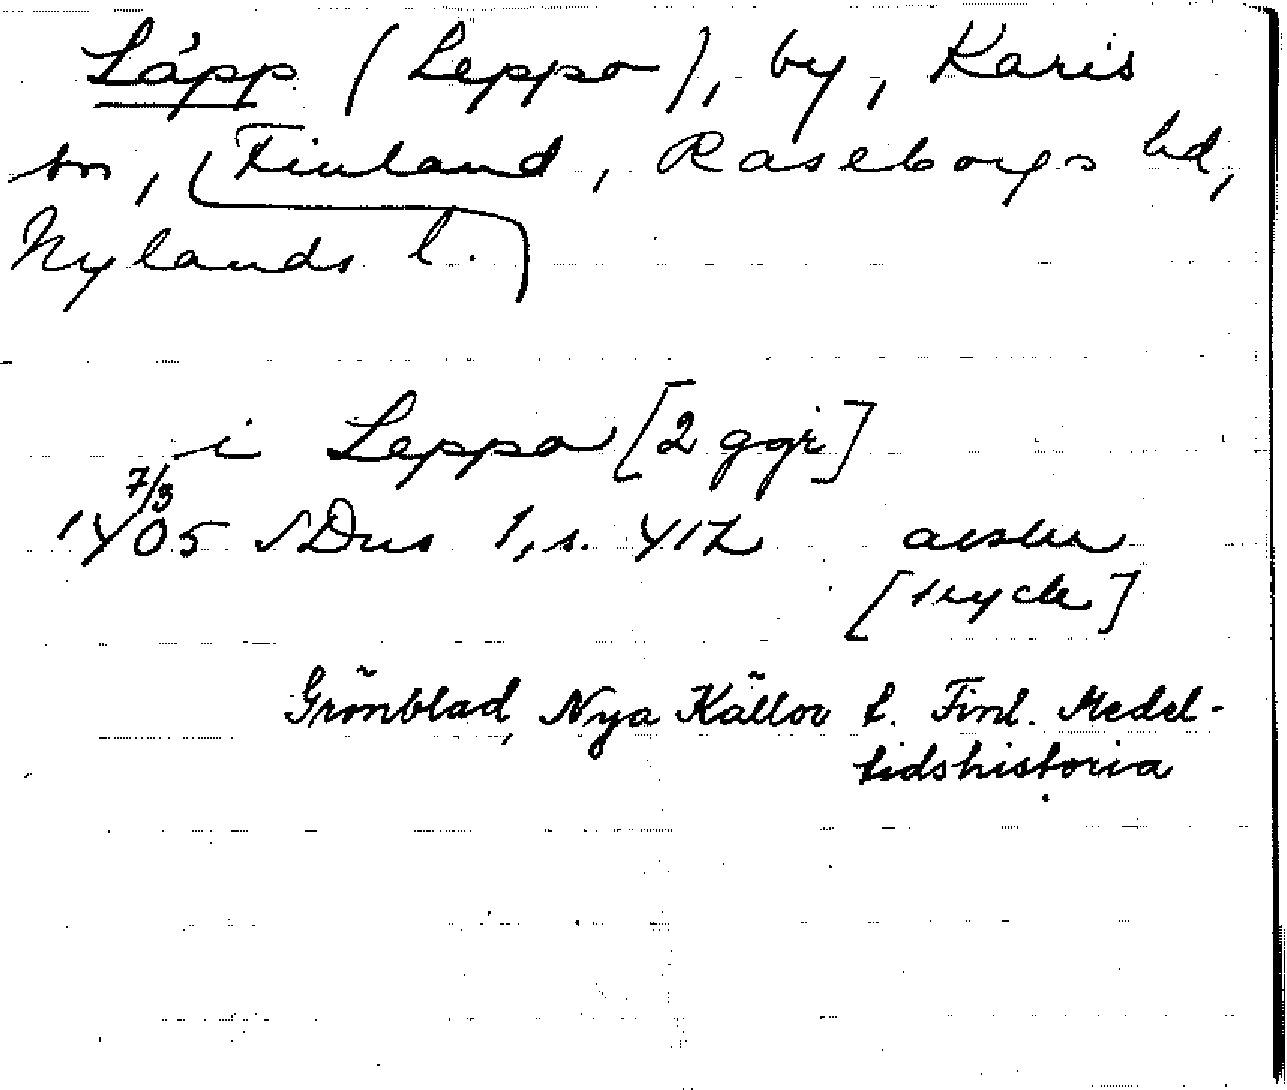 Läpp (Leppo), by, Karis
sn, (Finland, Raseborgs hd,
Nylands l.)
i Leppo [2 ggr]
7/3
1405 SDns 1, s. 412 avskr
[tryck]
Grönblad, Nya Källor t. Finl. Medel-
tidshistoria